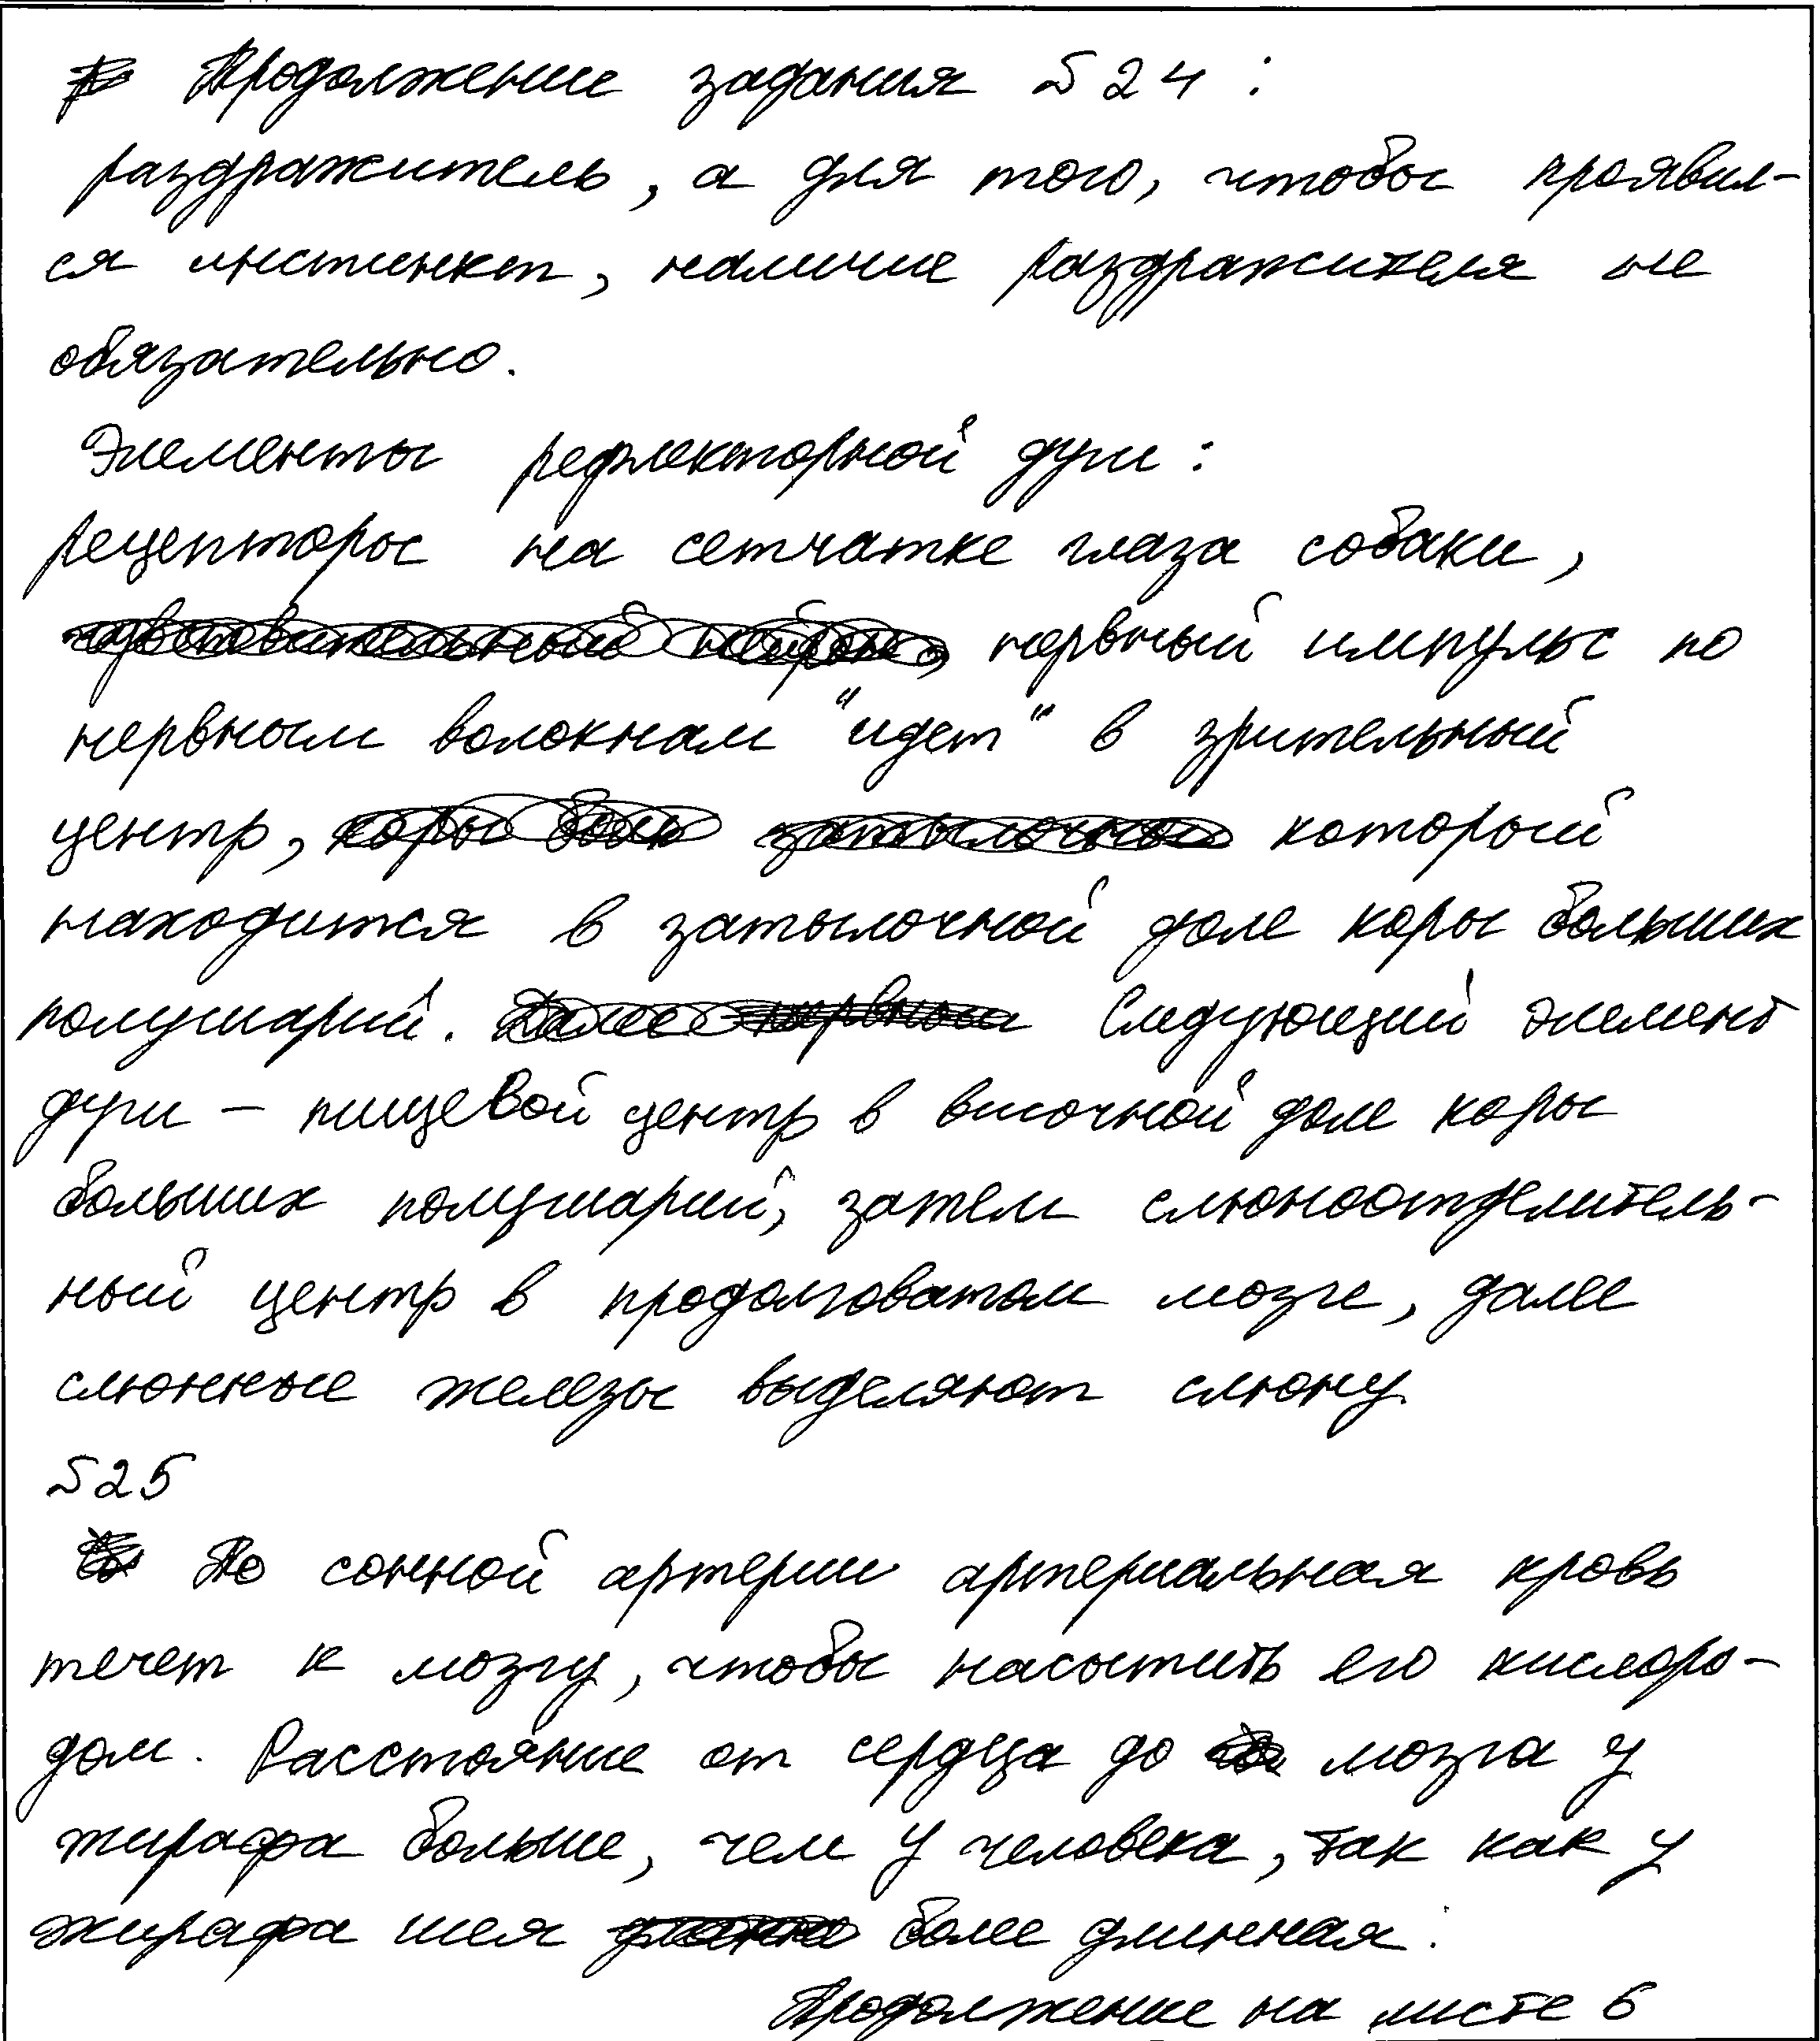 Продолжение задания №24:
раздражитель, а для того, чтобы проявил-
ся инстинкт, наличие раздражителя не
обязательно.
Элементы рефлекторной дуги:
рецепторы на сетчатке глаза собаки,
чувствительный нейрон, нервный импульс по
нервным волокнам "идет" в зрительный
центр, коры боль затылочной который
находится в затылочной доле коры больших
полушарий. Далее нервным Следующий элемент
дуги – пищевой центр в височной доле коры
больших полушарий, затем слюноотделитель-
ный центр в продолговатом мозге, далее
слюнные железы выделяют слюну.
№25
По сонной артерии артериальная кровь
течет к мозгу, чтобы насытить его кислоро-
дом. Расстояние от сердца до мозга у
жирафа больше, чем у человека, так как у
жирафа шея более длинная.
Продолжение на листе 6